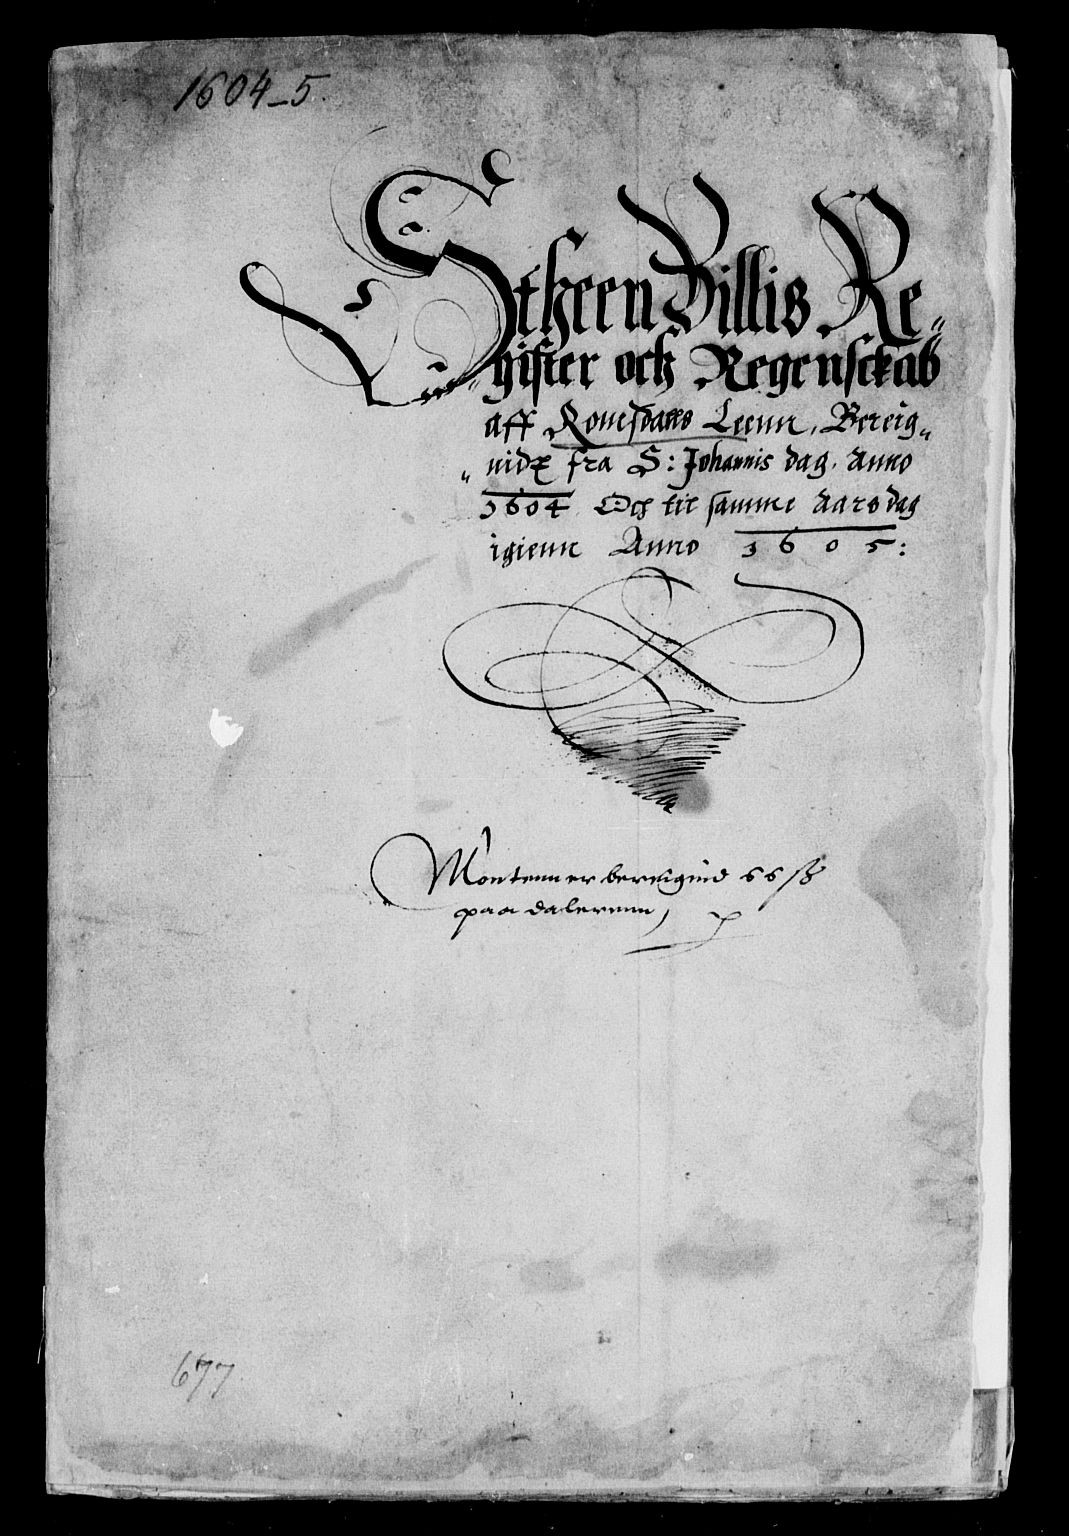 1604-5.
Stheen Billis Re„
„gister och Regenschab
aff Romsdalls Leenn, Bereig„
„nidt fra S: Johannis dag. Anno
1604 Och till samme Aars dag
igienn Anno 1605:
Montenn er bereignid 66 ß
paa dalerenn
677